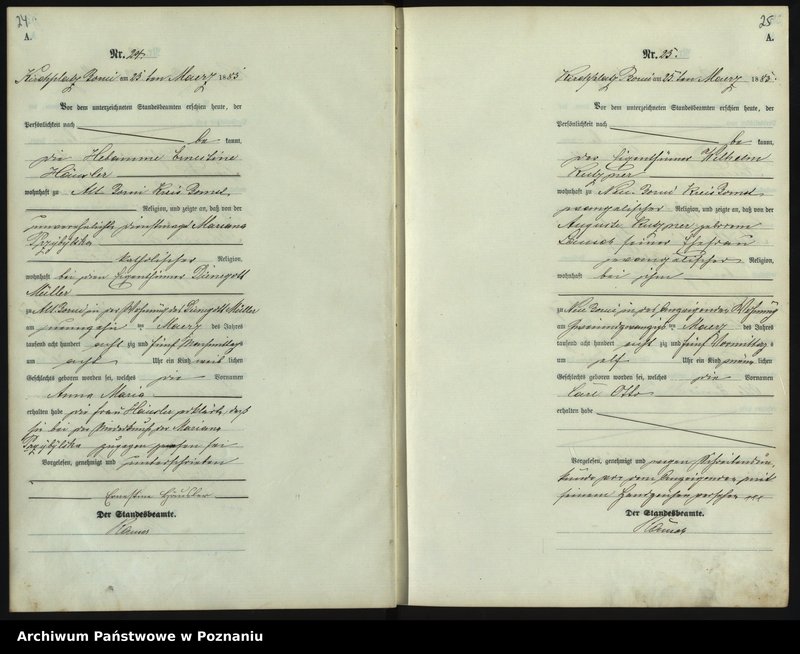 24
A.
Nr. 24.
Kirchplatz Bomi am 23ten Maerz 1885
Vor dem unterzeichneten Standesbeamten erschien heute, der
Persönlichkeit nach
be kannt,
die Hebamme Ernestine
Häusler
wohnhaft zu Alt Bomi Kreis Bomst,
Religion, und zeigte an, daß von der
unverehelichte Dienstmagd Mariana
Przybylska
katholischer Religion,
wohnhaft bei dem Eigenthümer Dienegott
Müller
zu Alt Bomi, in der Wohnung des Dienegott Müller
am neunzehn ten Maerz des Jahres
tausend acht hundert acht zig und fünf Nachmittags
um acht Uhr ein Kind weib lichen
Geschlechts geboren worden sei, welches die Vornamen
Anna Maria
erhalten habe die Frau Häusler erklärte, daß
sie bei der Niederkunft der Mariana
Przybylska zugegen gewesen sei
Vorgelesen, genehmigt und unterschrieben
Ernestine Häusler
Der Standesbeamte.
25
A.
Nr. 25.
Kirchplatz Bomi am 25ten Maerz 1885.
Vor dem unterzeichneten Standesbeamten erschien heute, der
Persönlichkeit nach
be kannt,
der Eigenthümer Wilhelm
Kutzner
wohnhaft zu Neu Bomi Kreis Bomst
evangelischer Religion, und zeigte an, daß von der
Auguste Kutzner geborene
seiner Ehefrau
evangelischer Religion,
wohnhaft bei ihm
zu Neu Bomi in des Anzeigenden Wohnung
am zweiundzwanzigs ten Maerz des Jahres
tausend acht hundert acht zig und fünf Vormittag s
um elf Uhr ein Kind männ lichen
Geschlechts geboren worden sei, welches die Vornamen
Carl Otto
erhalten habe
Vorgelesen, genehmigt und wegen Schreibensun-
kunde von dem Anzeigenden mit
seinem Handzeichen versehen xxx
Der Standesbeamte.
Archiwum Państwowe w Poznaniu